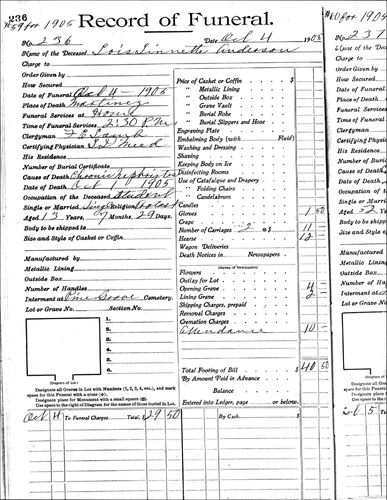 236
#59 for 1905
Record of Funeral.
No. 236 Date Oct 4 1905
Name of the Deceased Lois Linnette Anderson
Charge to
Order Given by
How Secured
Date of Funeral Oct 4 - 1905
Place of Death Martinez
Funeral Services at Home
Time of Funeral Services 2:30 P.M.
Clergyman
Certifying Physician
His Residence
Number of Burial Certificate
Cause of Death Chronic nephritis
Date of Death Oct 1 1905
Occupation of the Deceased Student
Single or Married, Single Religion
Aged 13 Years, 7 Months, 29 Days.
Body to be shipped to
Size and Style of Casket or Coffin
Manufactured by
Metallic Lining
Outside Box
Number of Handles
Interment at Pine Grove Cemetery.
Lot or Grave No. Section No.
1.
2.
3.
4.
5.
6.
(Diagram of Lot.)
Designate all Graves in Lot with Numbers (1, 2, 3, 4, etc.), and mark
space for this Funeral with a cross (+).
Designate place for Monument with a small square (□).
Use space to the right of Diagram for the names of those buried in Lot.
Price of Casket or Coffin $
" Metallic Lining
" Outside Box
" Grave Vault
" Burial Robe
" Burial Slippers and Hose
Engraving Plate
Embalming Body (with Fluid)
Washing and Dressing
Shaving
Keeping Body on Ice
Disinfecting Rooms
Use of Catafalque and Drapery
" Folding Chairs
" Candelabrum
Candles
Gloves 1 50
Crape
Number of Carriages 2 @ $ 11 —
Hearse 12
Wagon Deliveries
Death Notices in Newspapers
(Names of Newspapers)
Flowers
Outlay for Lot
Opening Grave 4
Lining Grave 2
Shipping Charges, prepaid
Removal Charges
Cremation Charges
Attendance 10 —
Total Footing of Bill $ 40 50
By Amount Paid in Advance
Balance
Entered into Ledger, page or below.
Oct 4 To Funeral Charges Total, $ 29 50 By Cash $
#60 for 1905
237
No. 237
Name of the Deceased
Charge to
Order Given by
How Secured
Date of Funeral
Place of Death
Funeral Services
Time of Funeral
Clergyman
Certifying Physician
His Residence
Number of Burial
Cause of Death
Date of Death
Occupation of the
Single or Married
Aged 32 Years
Body to be shipped
Size and Style of
Manufactured by
Metallic Lining
Outside Box
Number of Handles
Interment at
Lot or Grave No.
(Diagram of Lot.)
Designate all Grave
space for this Funeral
Designate place for
Use space to the right